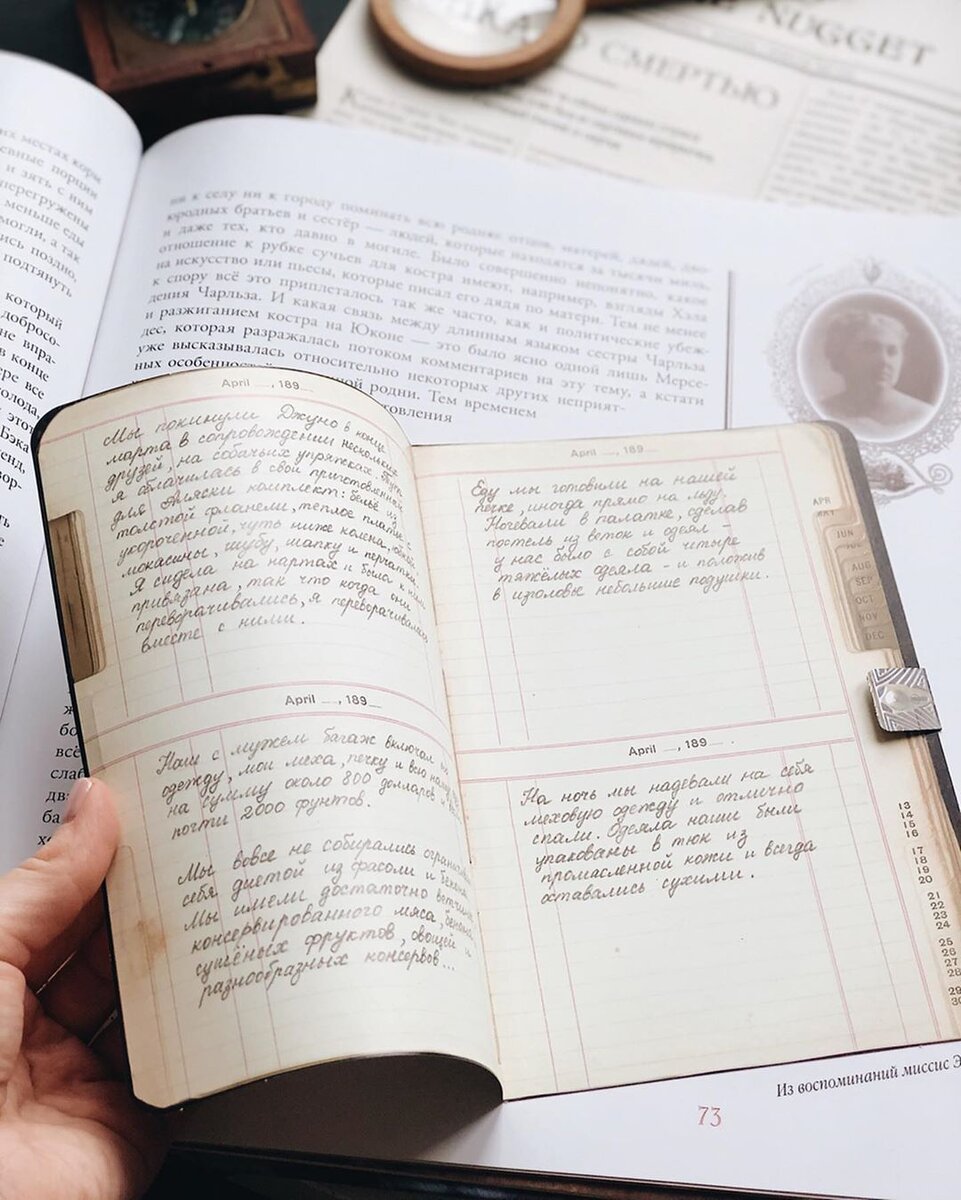 NUGGET
СМЕРТЬЮ
их местах корм
евные порции
и зять с ним
перегружены
меньше еды
могли, а так
ись поздно,
подтянуть
который
добросо-
не впра-
в конце
ере все
олода,
этот
Бэка
ни к селу ни к городу поминать всю родню: отцов, матерей, дядей, дво-
юродных братьев и сестёр — людей, которые находятся за тысячи миль,
и даже тех, кто давно в могиле. Было совершенно непонятно, какое
отношение к рубке сучьев для костра имеют, например, взгляды Хэла
на искусство или пьесы, которые писал его дядя по матери. Тем не менее
к спору всё это приплеталось так же часто, как и политические убеж-
дения Чарльза. И какая связь между длинным языком сестры Чарльза
и разжиганием костра на Юконе — это было ясно одной лишь Мерсе-
дес, которая разражалась потоком комментариев на эту тему, а кстати
уже высказывалась относительно некоторых других неприят-
ных особенностей родни. Тем временем
April , 189
Мы покинули Джуно в конце
марта в сопровождении нескольких
друзей, на собачьих упряжках. Тут
я облачилась в свой приготовленный
для Аляски комплект: бельё из
толстой фланели, теплое платье с
укороченной, чуть ниже колена,
мокасины, шубу, шапку и перчатки.
Я сидела на нартах и была к ним
привязана, так что когда они
переворачивались, я переворачивалась
вместе с ними.
April , 189
Наш с мужем багаж включал
одежду, мои меха, печку и всю
на сумму около 800 долларов и
почти 2000 фунтов.
Мы вовсе не собирались
себя диетой из фасоли и бекона.
Мы имели достаточно ветчины,
консервированного мяса,
сушёных фруктов, овощей и
разнообразных консервов...
April , 189
Еду мы готовили на нашей
печке, иногда прямо на льду.
Ночевали в палатке, сделав
постель из веток и одеял -
у нас было с собой четыре
тяжёлых одеяла - и положив
в изголовье небольшие подушки.
April , 189
На ночь мы надевали на себя
меховую одежду и отлично
спали. Одеяла наши были
упакованы в тюк из
промасленной кожи и всегда
оставались сухими.
APR
MAY
JUN
AUG
SEP
OCT
NOV
DEC
13
14
15
16
17
18
19
20
21
22
23
24
25
26
27
28
29
30
Из воспоминаний миссис Э
73